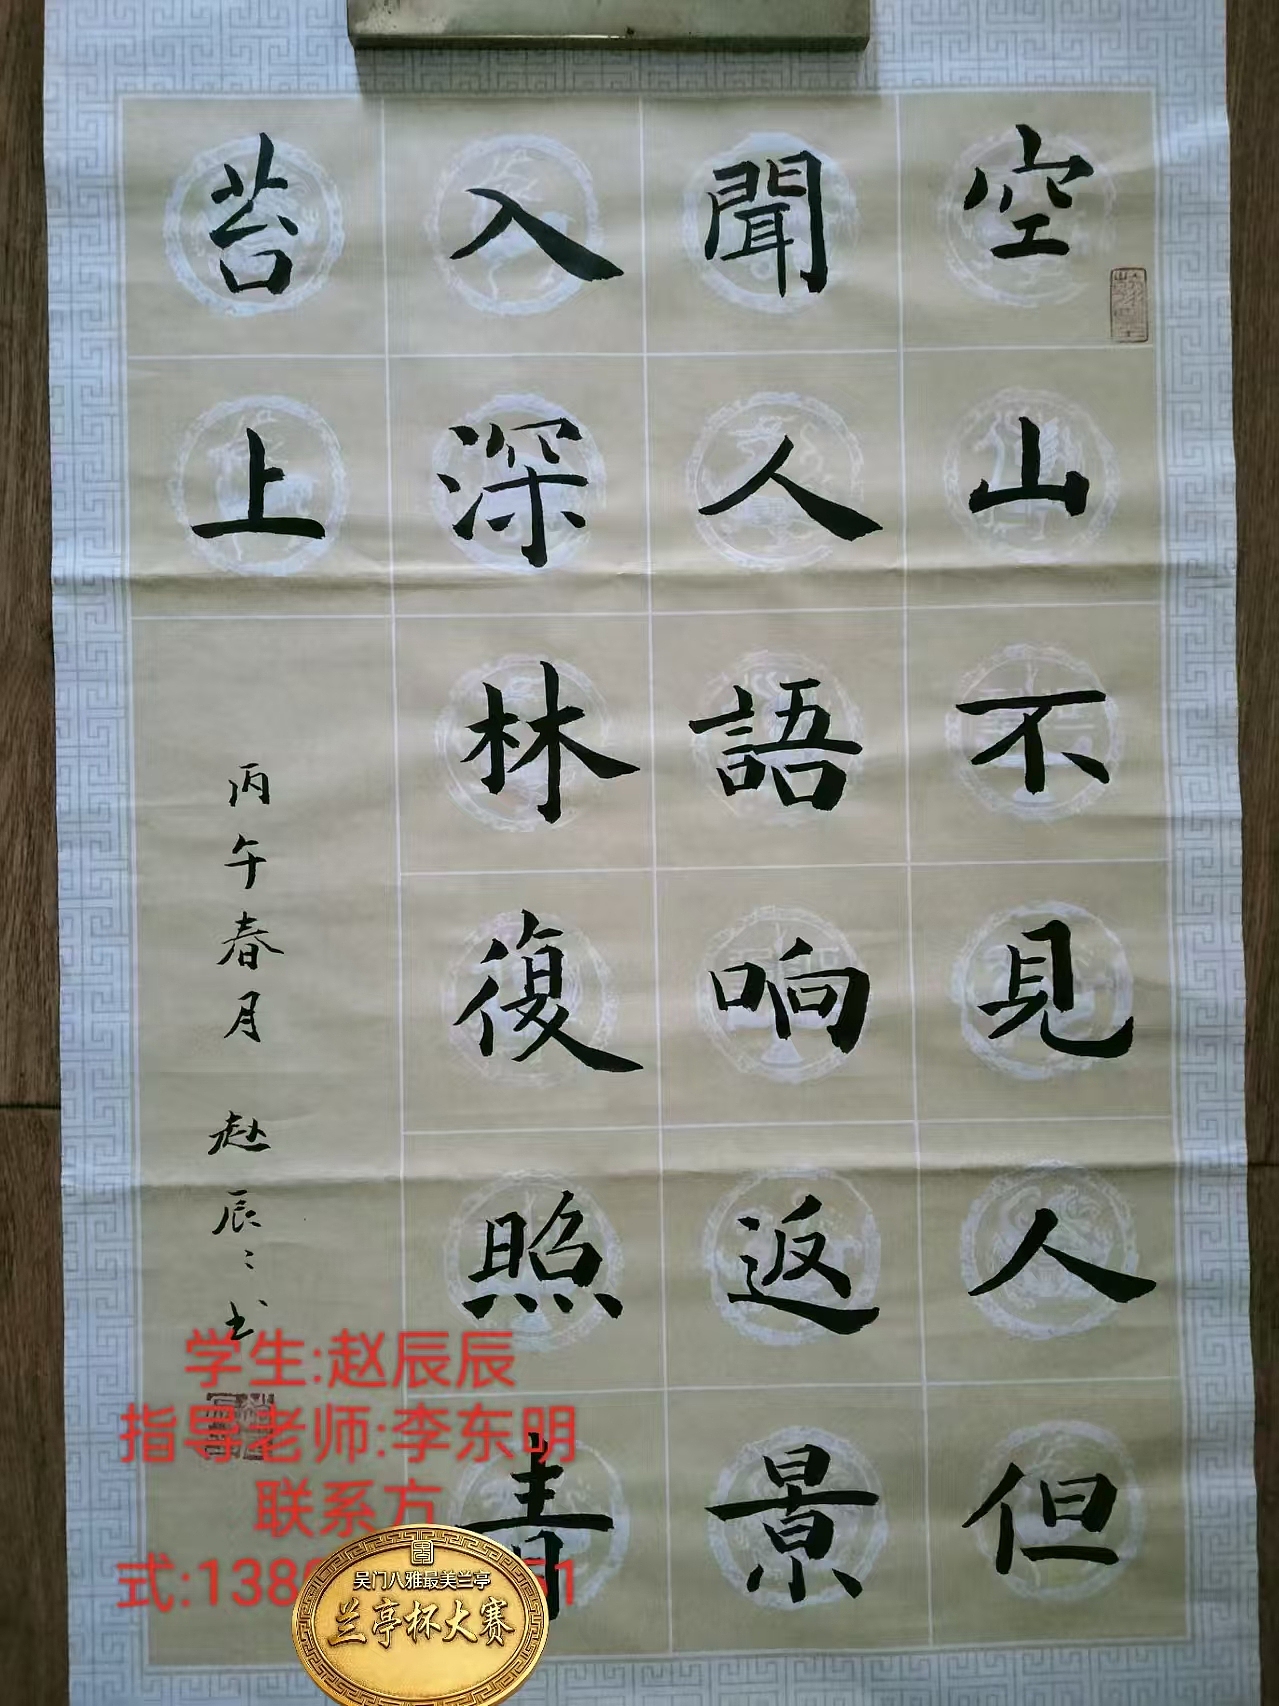 空山不見人但
聞人語响返景
入深林復照青
苔上
丙午春月 赵辰〻书
学生:赵辰辰
指导老师:李东明
联系方
式:138
51
吴门八雅最美兰亭
兰亭杯大赛